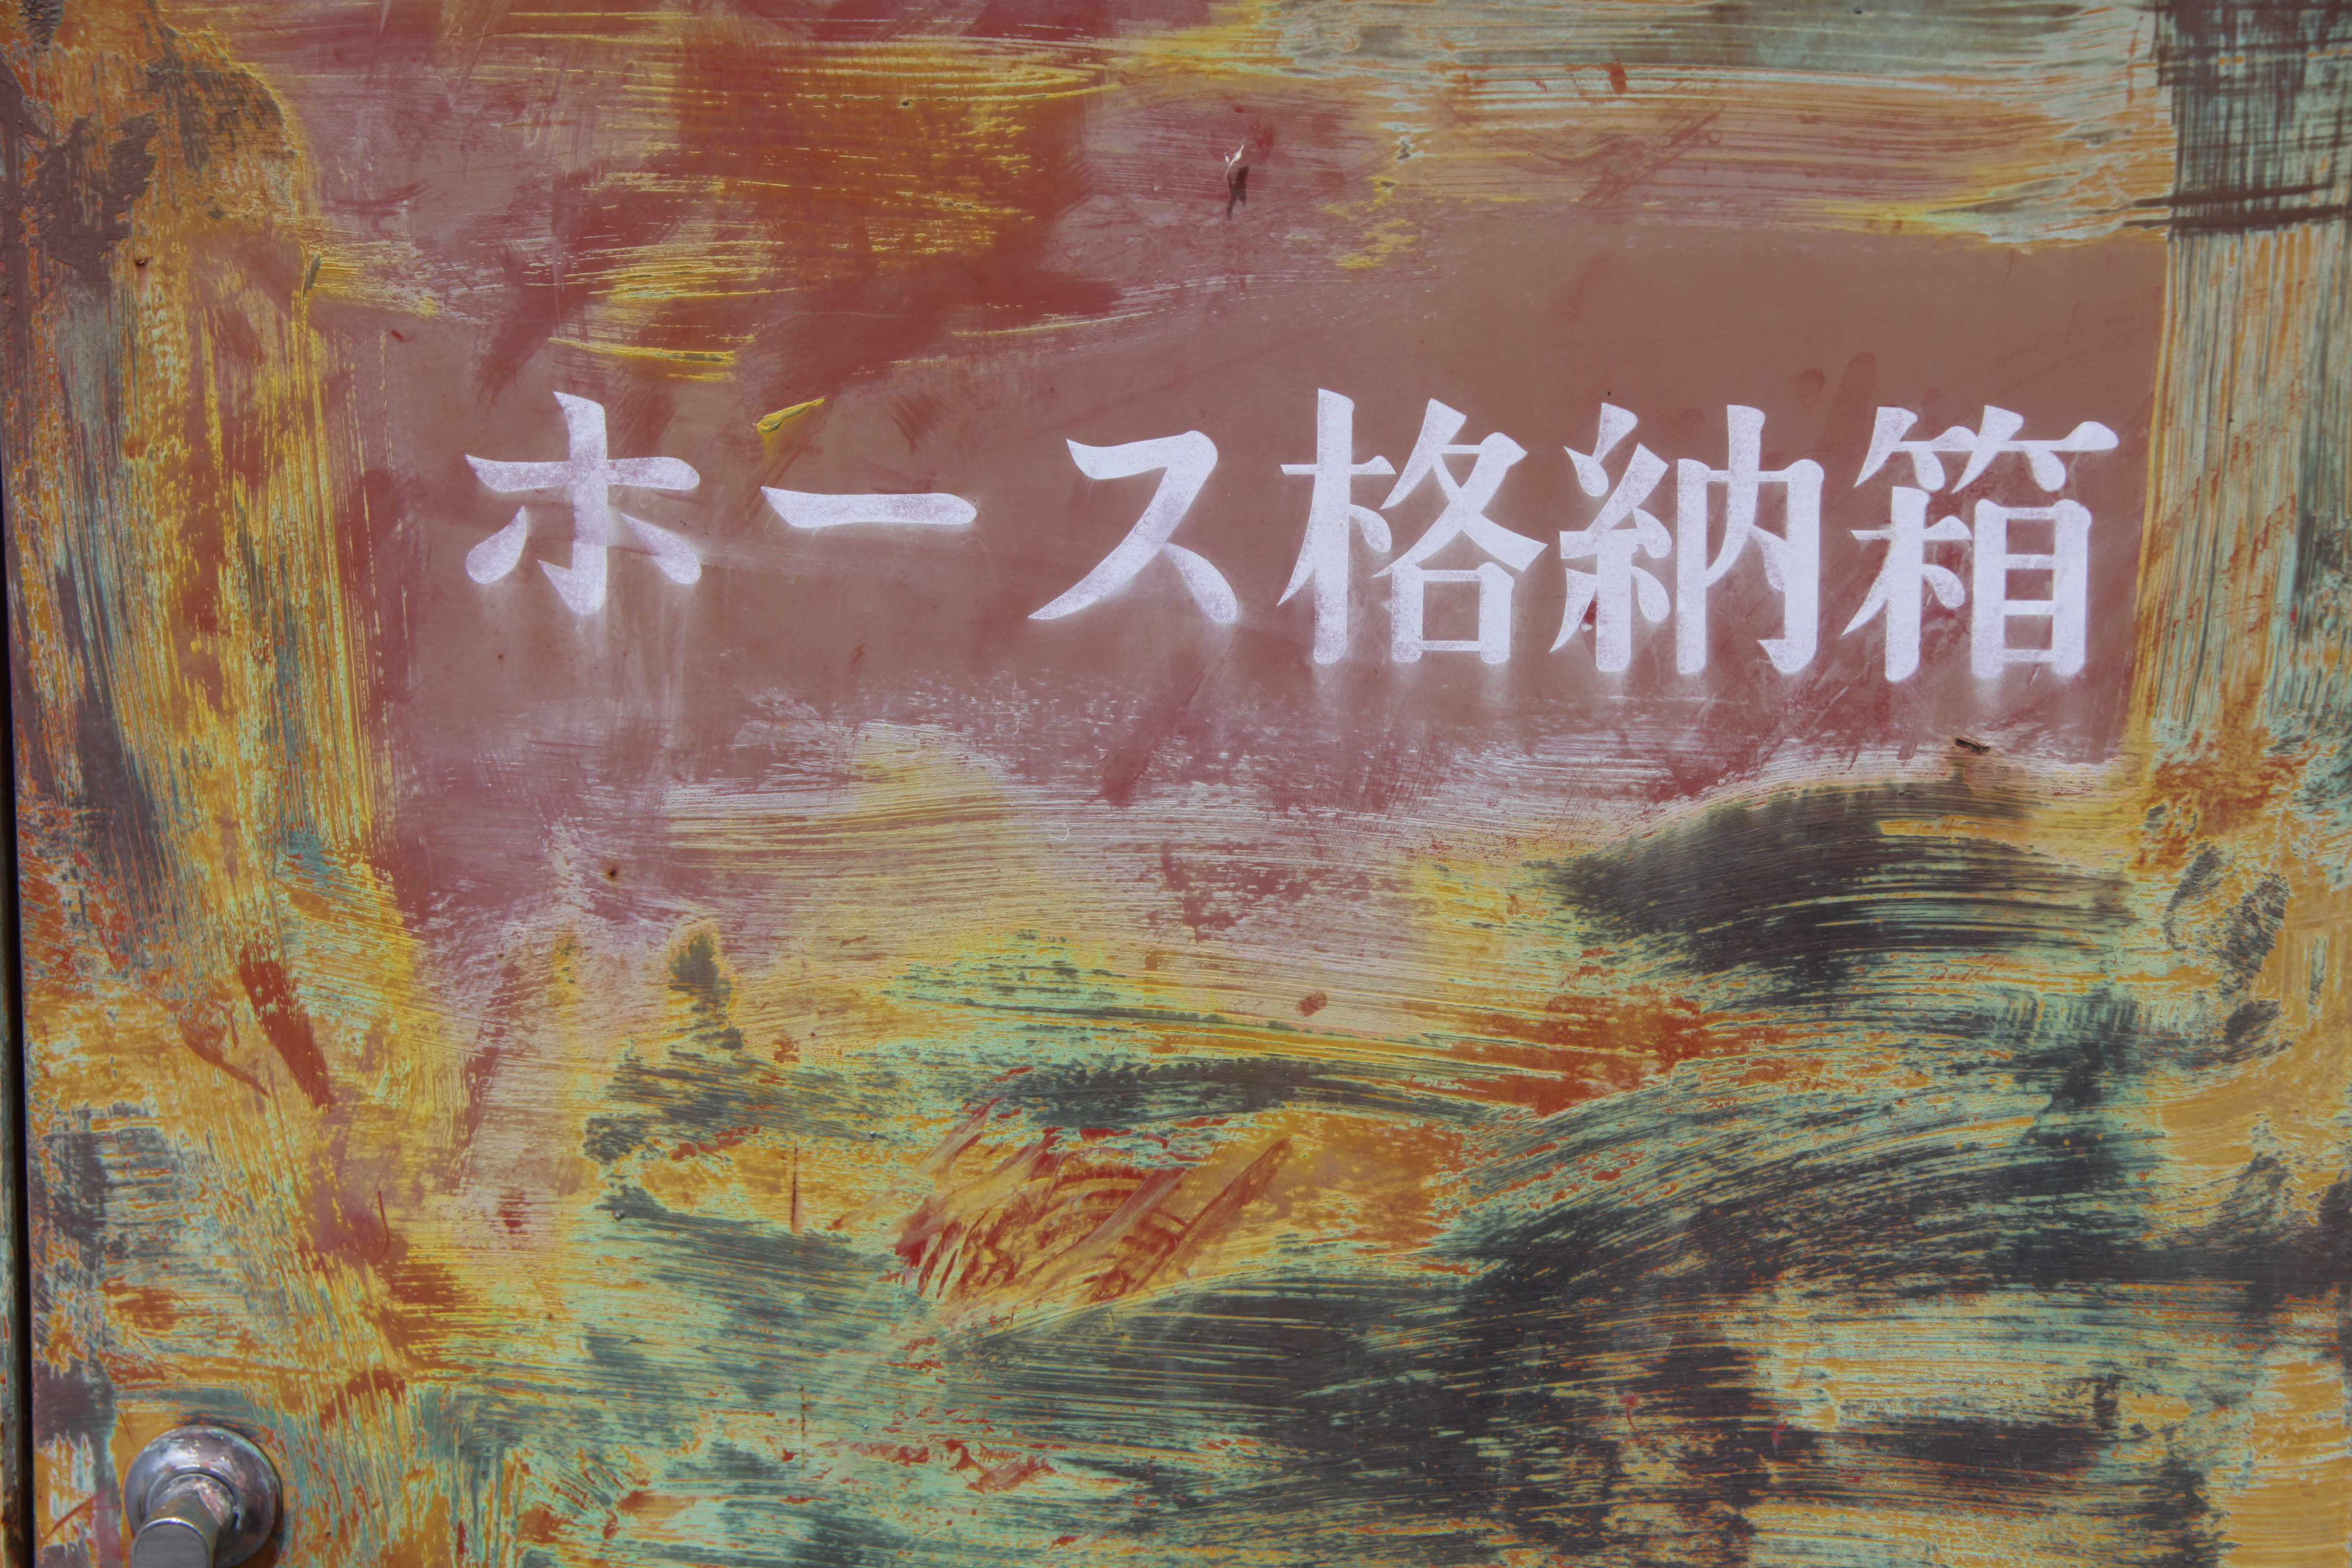 ホース格納箱